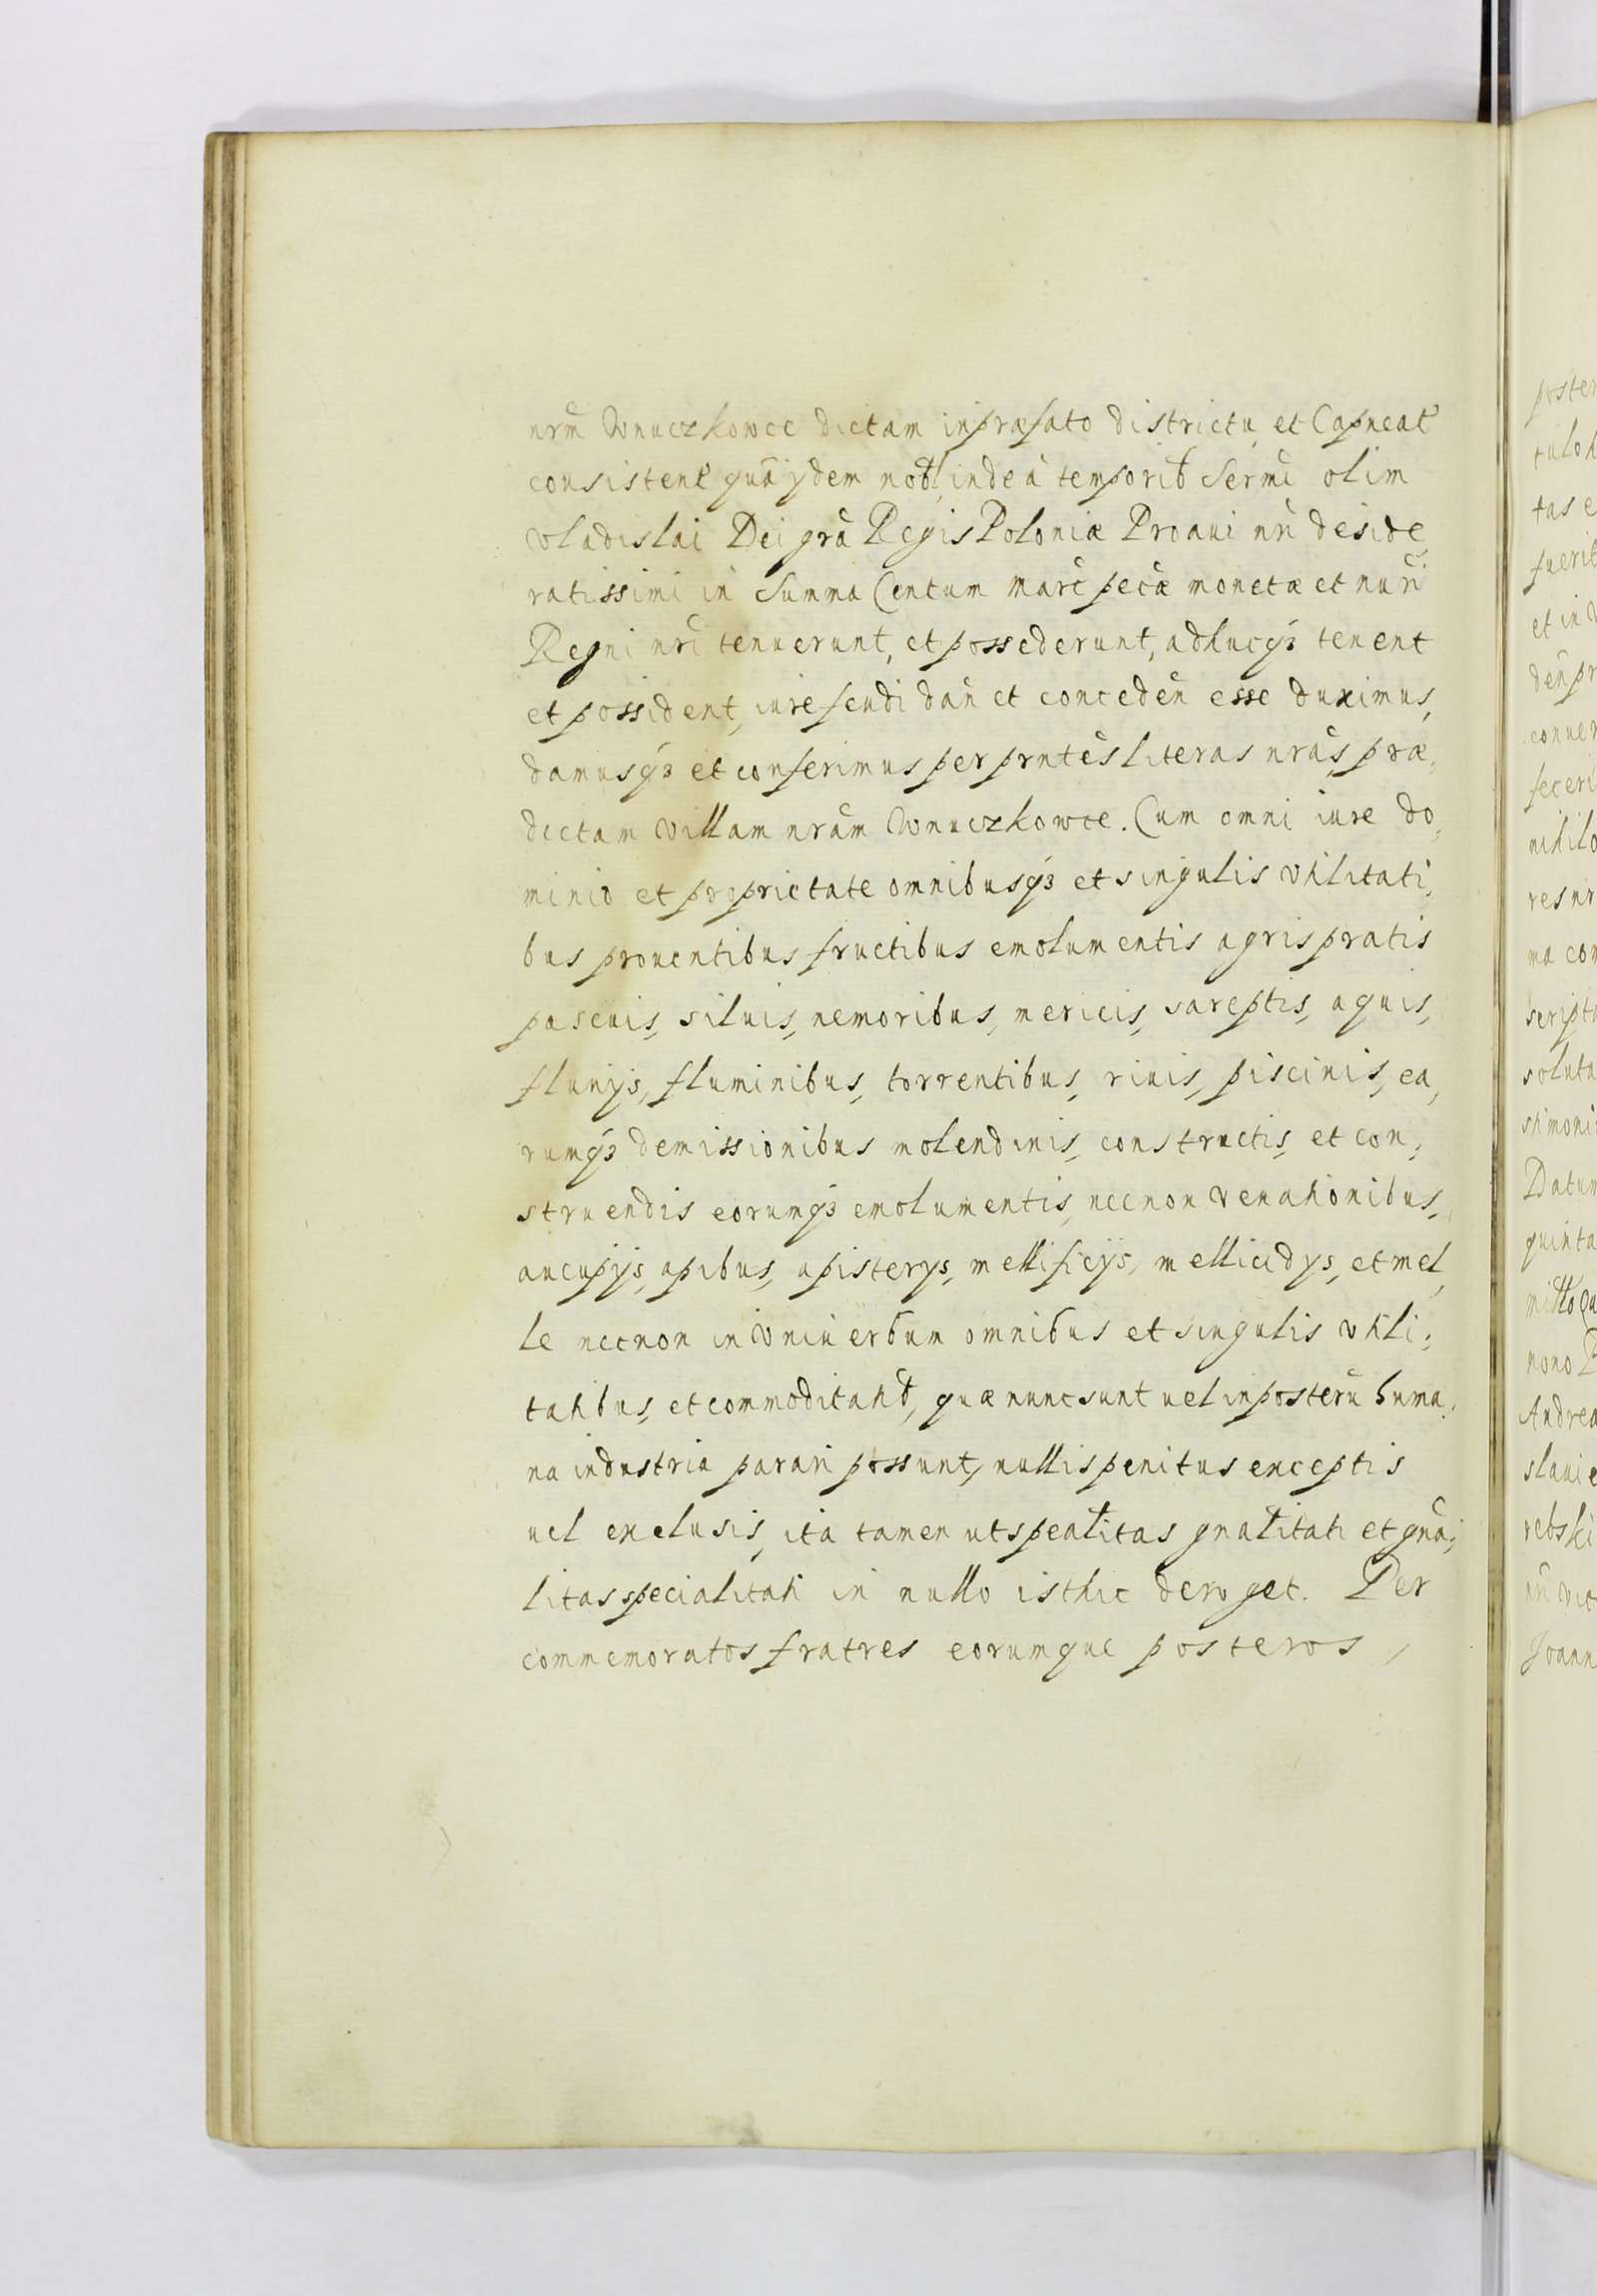 nrm̃ Wnuczkowce dictam in præfato districtu et Capneat̃
consistent̃ quã ydem nob̃l, inde à temporib̃ Serm̃i olim
Vladislai Dei grã Regis Poloniæ Proaui nr̃i deside,
ratissimi in Summa Centum Marc̃ pec̃æ monetæ et nur̃i
Regni nr̃i tenuerunt, et possederunt, adhucq3 tenent
et possident, iure feudi dañ et concedeñ esse duximus,
damusq3 et conferimus per prñtes literas nrãs, præ,
dictam Villam nrãm Wnuczkowce. Cum omni iure do,
minio et proprietate omnibusq3 et singulis Vtilitati,
bus prouentibus fructibus emolumentis agris pratis
pascuis, siluis, nemoribus, mericis, sareptis, aquis,
fluuijs, fluminibus, torrentibus, riuis, piscinis, ea,
rumq3 demissionibus molendinis, constructis, et con,
struendis eorumq3 emolumentis, necnon Venationibus,
aucupijs, apibus, apisterys, mellificijs, mellicidys, et mel,
le necnon in Vniuersum omnibus et singulis vtili,
tatibus, et commoditatib̃, quæ nunc sunt uel in posterũ huma,
na industria parari possunt, nullis penitus exceptis
uel exclusis, ita tamen ut spealitas gnalitati et gnã,
litas specialitati in nullo isthic deroget. Per
commemoratos fratres eorumque posteros,